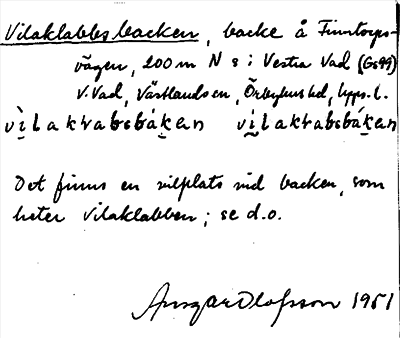 Vilaklabbsbacken, backe å Finntorps-
vägen, 200 m N s i Vestra Vad (Gs99)
V. Vad, Västlands sn, Örbyhus hd, Upps. l.
vìlakrabsbáken vìlakrabsbáken
Det finns en vilplats vid backen, som
heter Vilaklabben; se d.o.
Ansgar Olofsson 1951